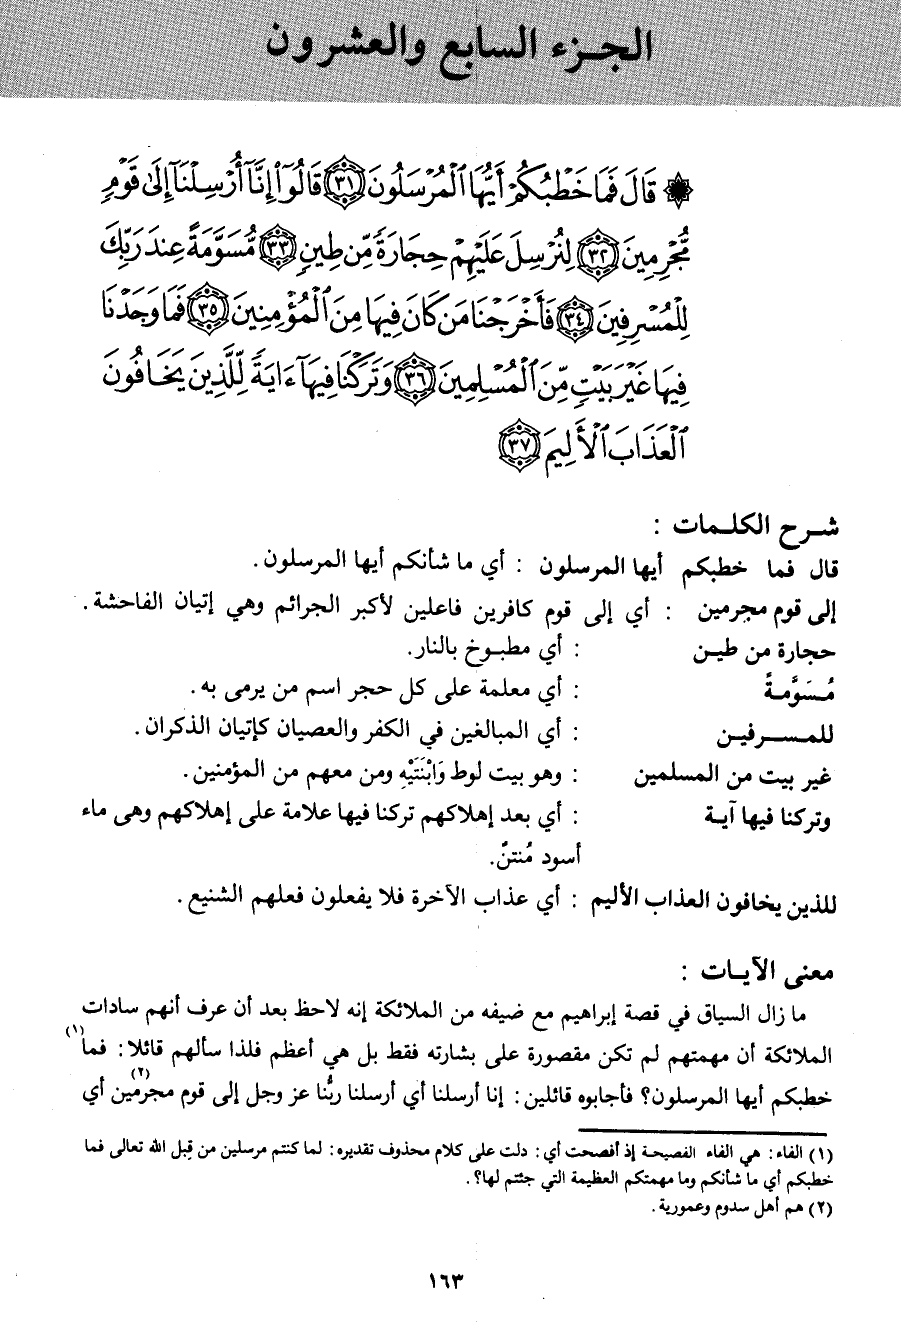 الجزء السابع والعشرون
۞ قَالَ فَمَا خَطْبُكُمْ أَيُّهَا ٱلْمُرْسَلُونَ ٣١ قَالُوٓا۟ إِنَّآ أُرْسِلْنَآ إِلَىٰ قَوْمٍ
مُّجْرِمِينَ ٣٢ لِنُرْسِلَ عَلَيْهِمْ حِجَارَةً مِّن طِينٍ ٣٣ مُّسَوَّمَةً عِندَ رَبِّكَ
لِلْمُسْرِفِينَ ٣٤ فَأَخْرَجْنَا مَن كَانَ فِيهَا مِنَ ٱلْمُؤْمِنِينَ ٣٥ فَمَا وَجَدْنَا
فِيهَا غَيْرَ بَيْتٍ مِّنَ ٱلْمُسْلِمِينَ ٣٦ وَتَرَكْنَا فِيهَآ ءَايَةً لِّلَّذِينَ يَخَافُونَ
ٱلْعَذَابَ ٱلْأَلِيمَ ٣٧
شرح الكلمات :
قال فما خطبكم أيها المرسلون : أي ما شأنكم أيها المرسلون.
إلى قوم مجرمين : أي إلى قوم كافرين فاعلين لأكبر الجرائم وهي إتيان الفاحشة .
حجارة من طين : أي مطبوخ بالنار.
مُسَوَّمةً : أي معلمة على كل حجر اسم من يرمى به .
للمسرفين : أي المبالغين في الكفر والعصيان كإتيان الذكران .
غير بيت من المسلمين : وهو بيت لوط وَابْنَتَيْهِ ومن معهم من المؤمنين.
وتركنا فيها آية : أي بعد إهلاكهم تركنا فيها علامة على إهلاكهم وهى ماء
أسود مُنتنٌ.
للذين يخافون العذاب الأليم : أي عذاب الآخرة فلا يفعلون فعلهم الشنيع .
معنى الآيات :
ما زال السياق في قصة إبراهيم مع ضيفه من الملائكة إنه لاحظ بعد أن عرف أنهم سادات
الملائكة أن مهمتهم لم تكن مقصورة على بشارته فقط بل هي أعظم فلذا سألهم قائلا: فما(١)
خطبكم أيها المرسلون؟ فأجابوه قائلين: إنا أرسلنا أي أرسلنا ربُّنا عز وجل إلى قوم مجرمين(٢) أي
(١) الفاء: هي الفاء الفصيحة إذ أفصحت أي: دلت على كلام محذوف تقديره: لما كنتم مرسلين من قِبل الله تعالى فما
خطبكم أي ما شأنكم وما مهمتكم العظيمة التي جئتم لها؟.
(٢) هم أهل سدوم وعمورية.
١٦٣